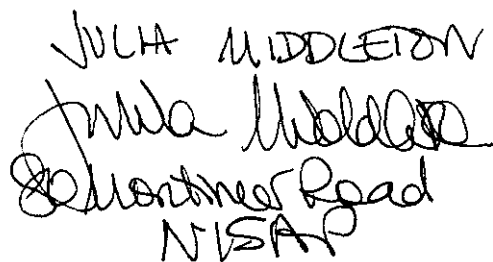 JULIA MIDDLETON
Julia Middleton
Mortimer Road